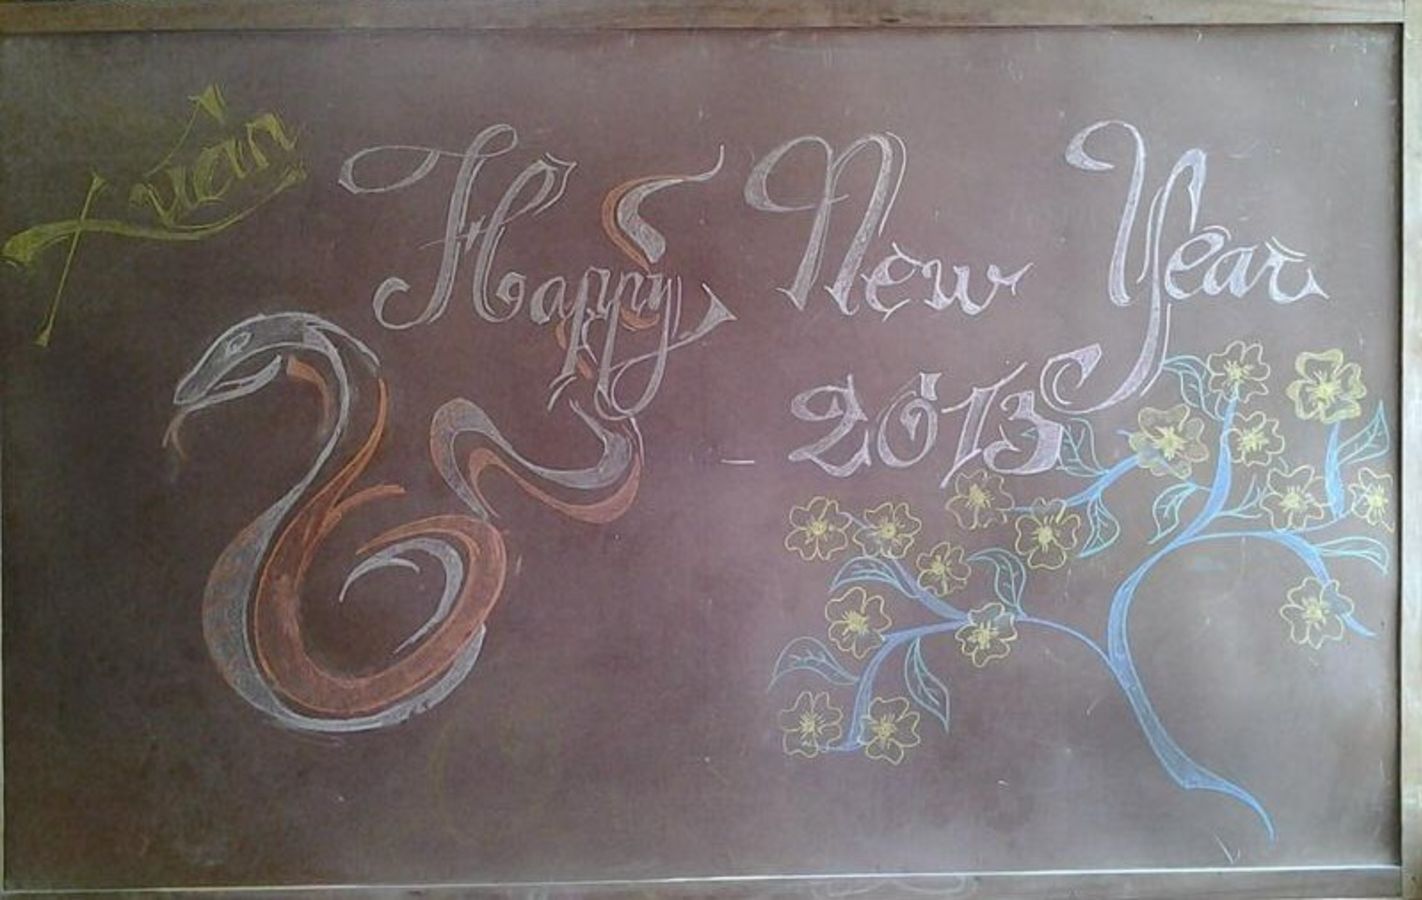 Xuân
Happy New Year
2013